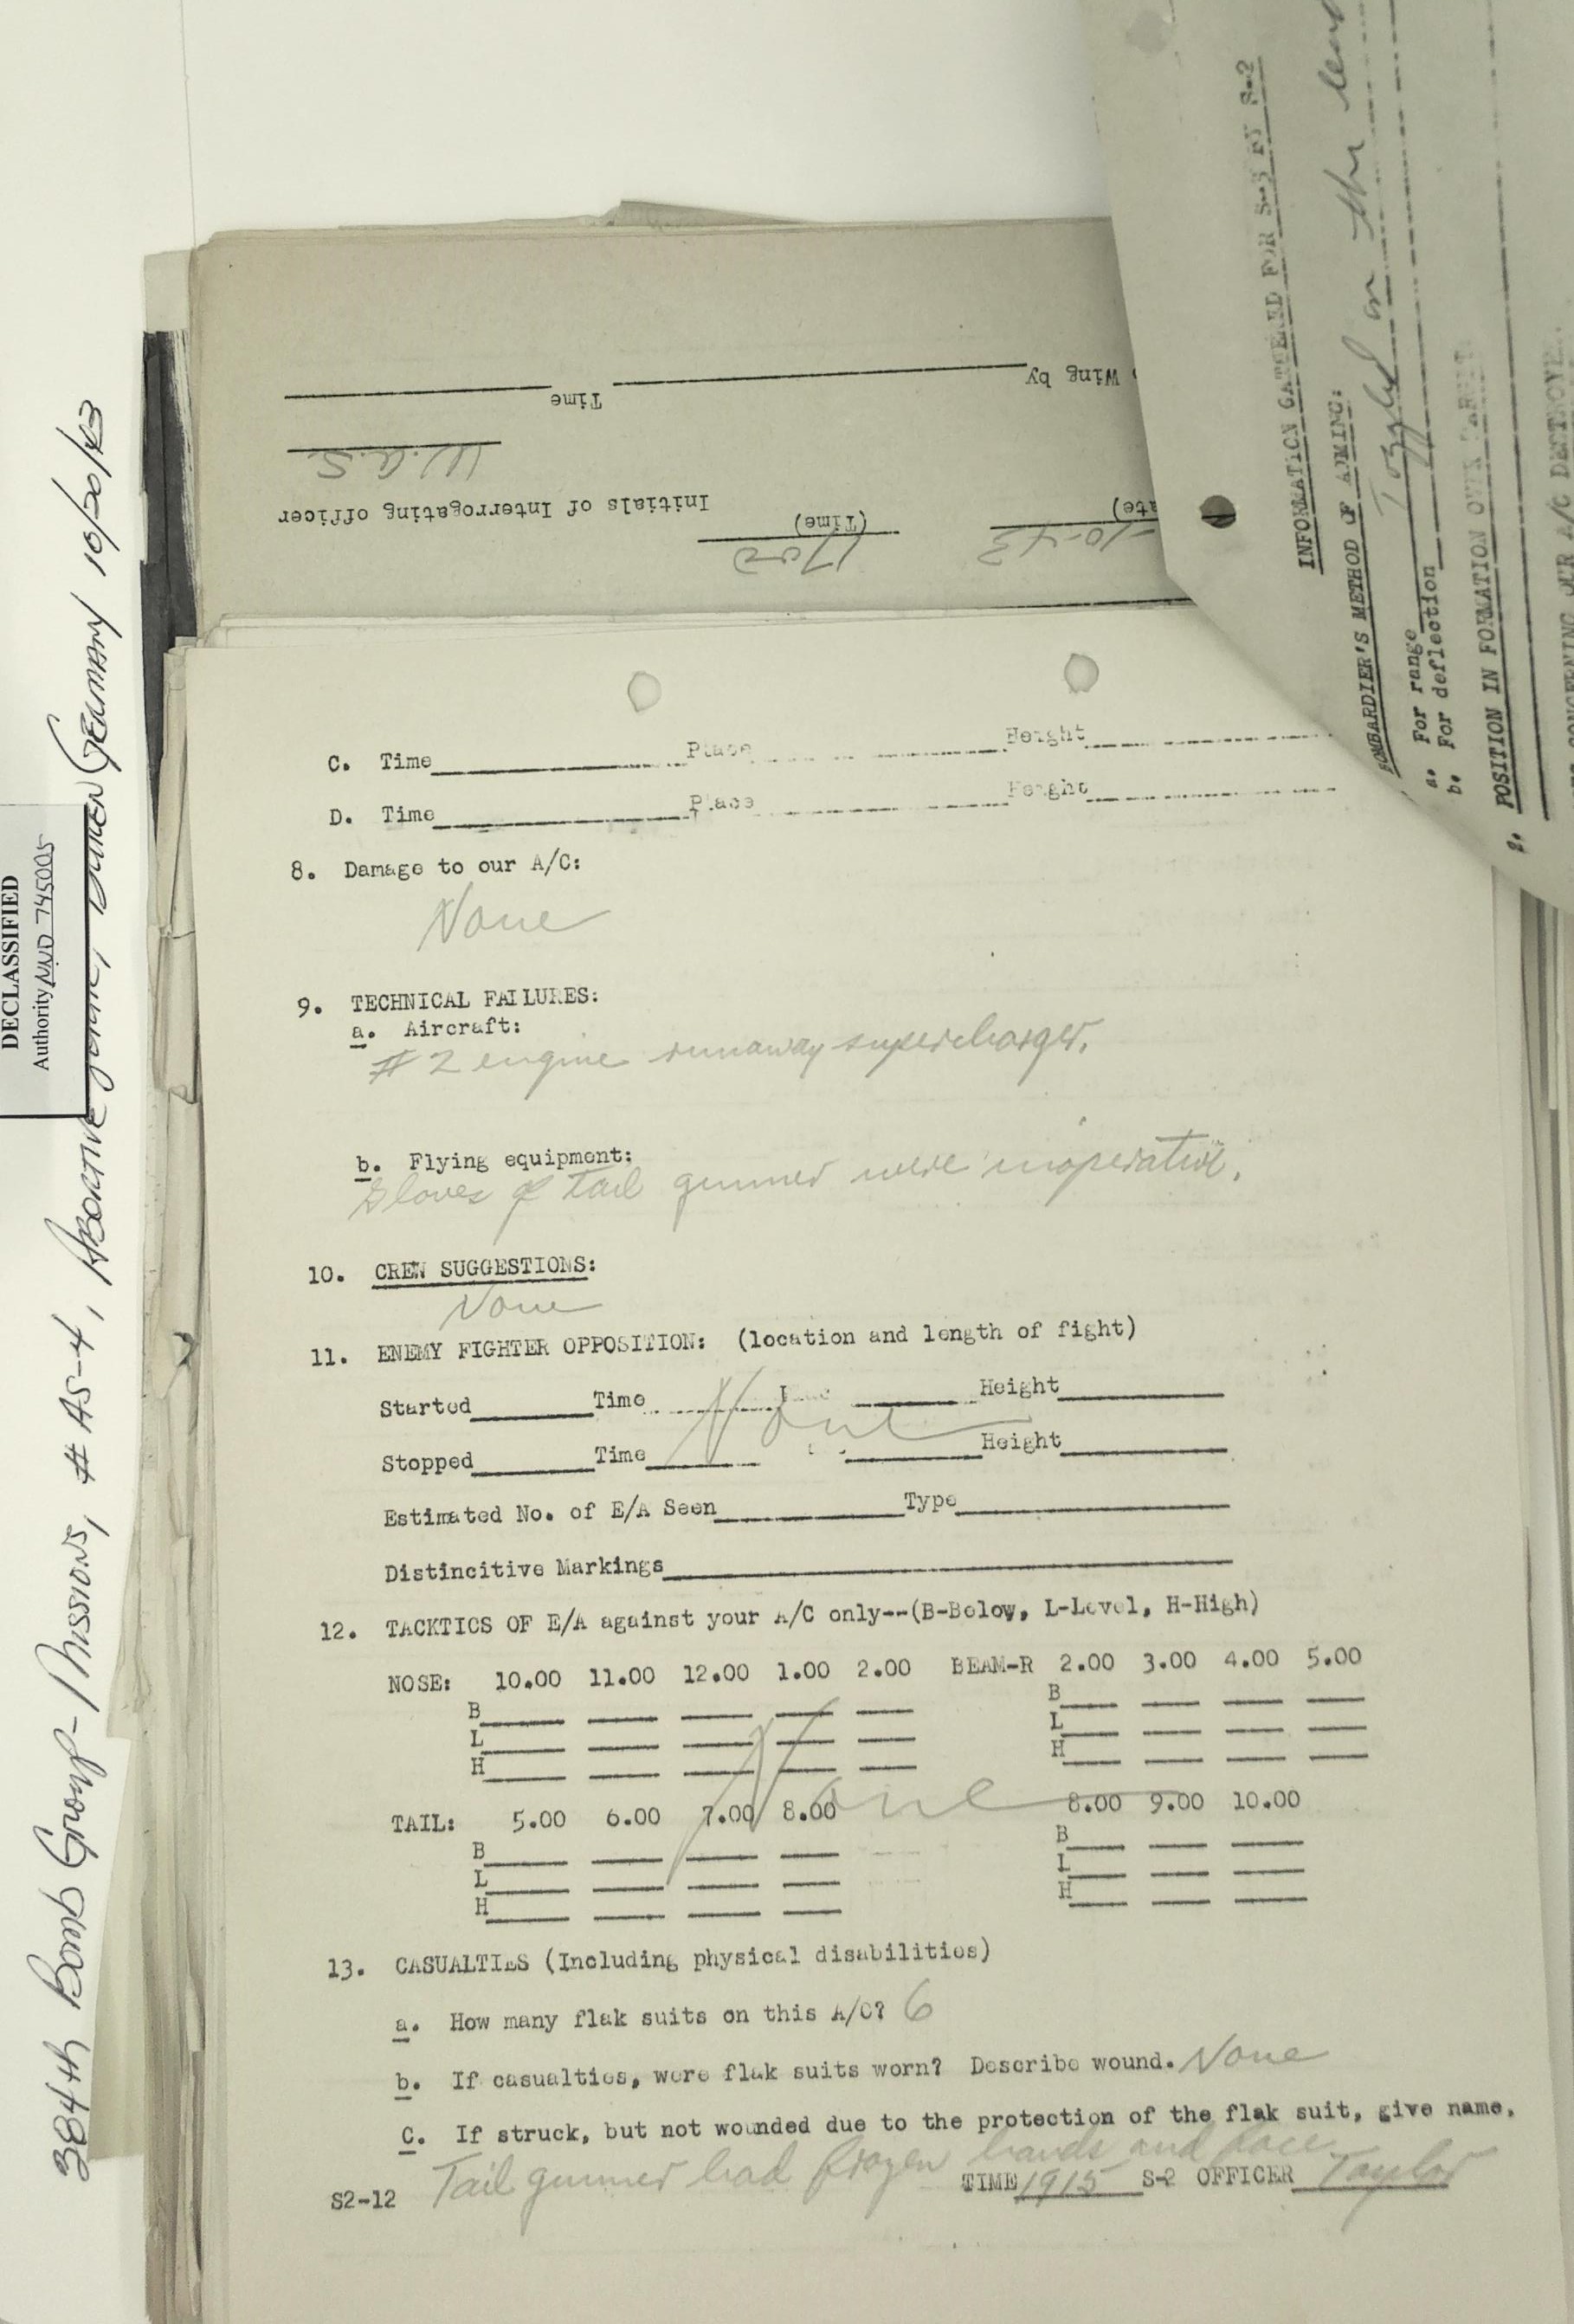 384th Bomb Group - Missions, # AS-4, Abortive
Duren Germany 10/20/43
DECLASSIFIED
Authority NND 745005
Wing by
Time
W.A.S.
Initials of Interrogating officer
1702
(Time)
-10-43
INFORMATION GATHERED FOR S-3 BY S-2
BOMBARDIER'S METHOD OF AIMING:
Toggled on the lead
a. For range
b. For deflection
2. POSITION IN FORMATION OVER TARGET
CONCERNING OUR A/C DESTROYED
C. Time Place Height
D. Time Place Height
8. Damage to our A/C:
None
9. TECHNICAL FAILURES:
a. Aircraft:
# 2 engine runaway supercharger.
b. Flying equipment:
Gloves of Tail gunner were inoperative.
10. CREW SUGGESTIONS:
None
11. ENEMY FIGHTER OPPOSITION: (location and length of fight)
Started Time Height
None
Stopped Time Height
Estimated No. of E/A Seen Type
Distincitive Markings
12. TACKTICS OF E/A against your A/C only--(B-Below, L-Level, H-High)
NOSE: 10.00 11.00 12.00 1.00 2.00 BEAM-R 2.00 3.00 4.00 5.00
B B
L L
H H
None
TAIL: 5.00 6.00 7.00 8.00 8.00 9.00 10.00
B B
L L
H H
13. CASUALTIES (Including physical disabilities)
a. How many flak suits on this A/C? 6
b. If casualties, were flak suits worn? Describe wound. None
C. If struck, but not wounded due to the protection of the flak suit, give name.
Tail gunner had frozen hands and face
S2-12 TIME 1915 S-2 OFFICER Taylor